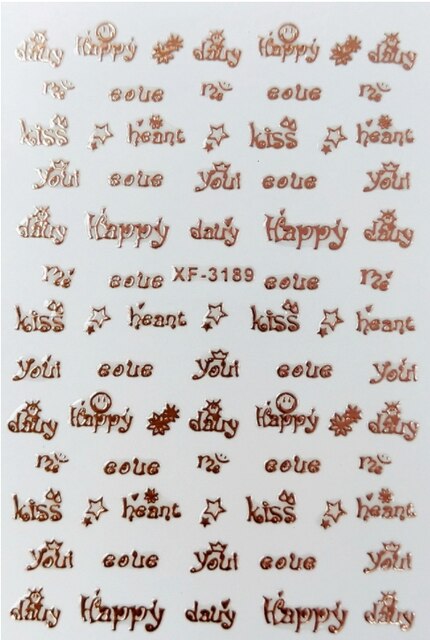 dauy Happy dauy Happy dauy
me eoue me eoue me
kiss heant kiss heant
you! eoue you! eoue you!
dauy Happy dauy Happy dauy
me eoue XF-3189 eoue me
kiss heant kiss heant
you! eoue you! eoue you!
dauy Happy dauy Happy dauy
me eoue me eoue me
kiss heant kiss heant
you! eoue you! eoue you!
dauy Happy dauy Happy dauy